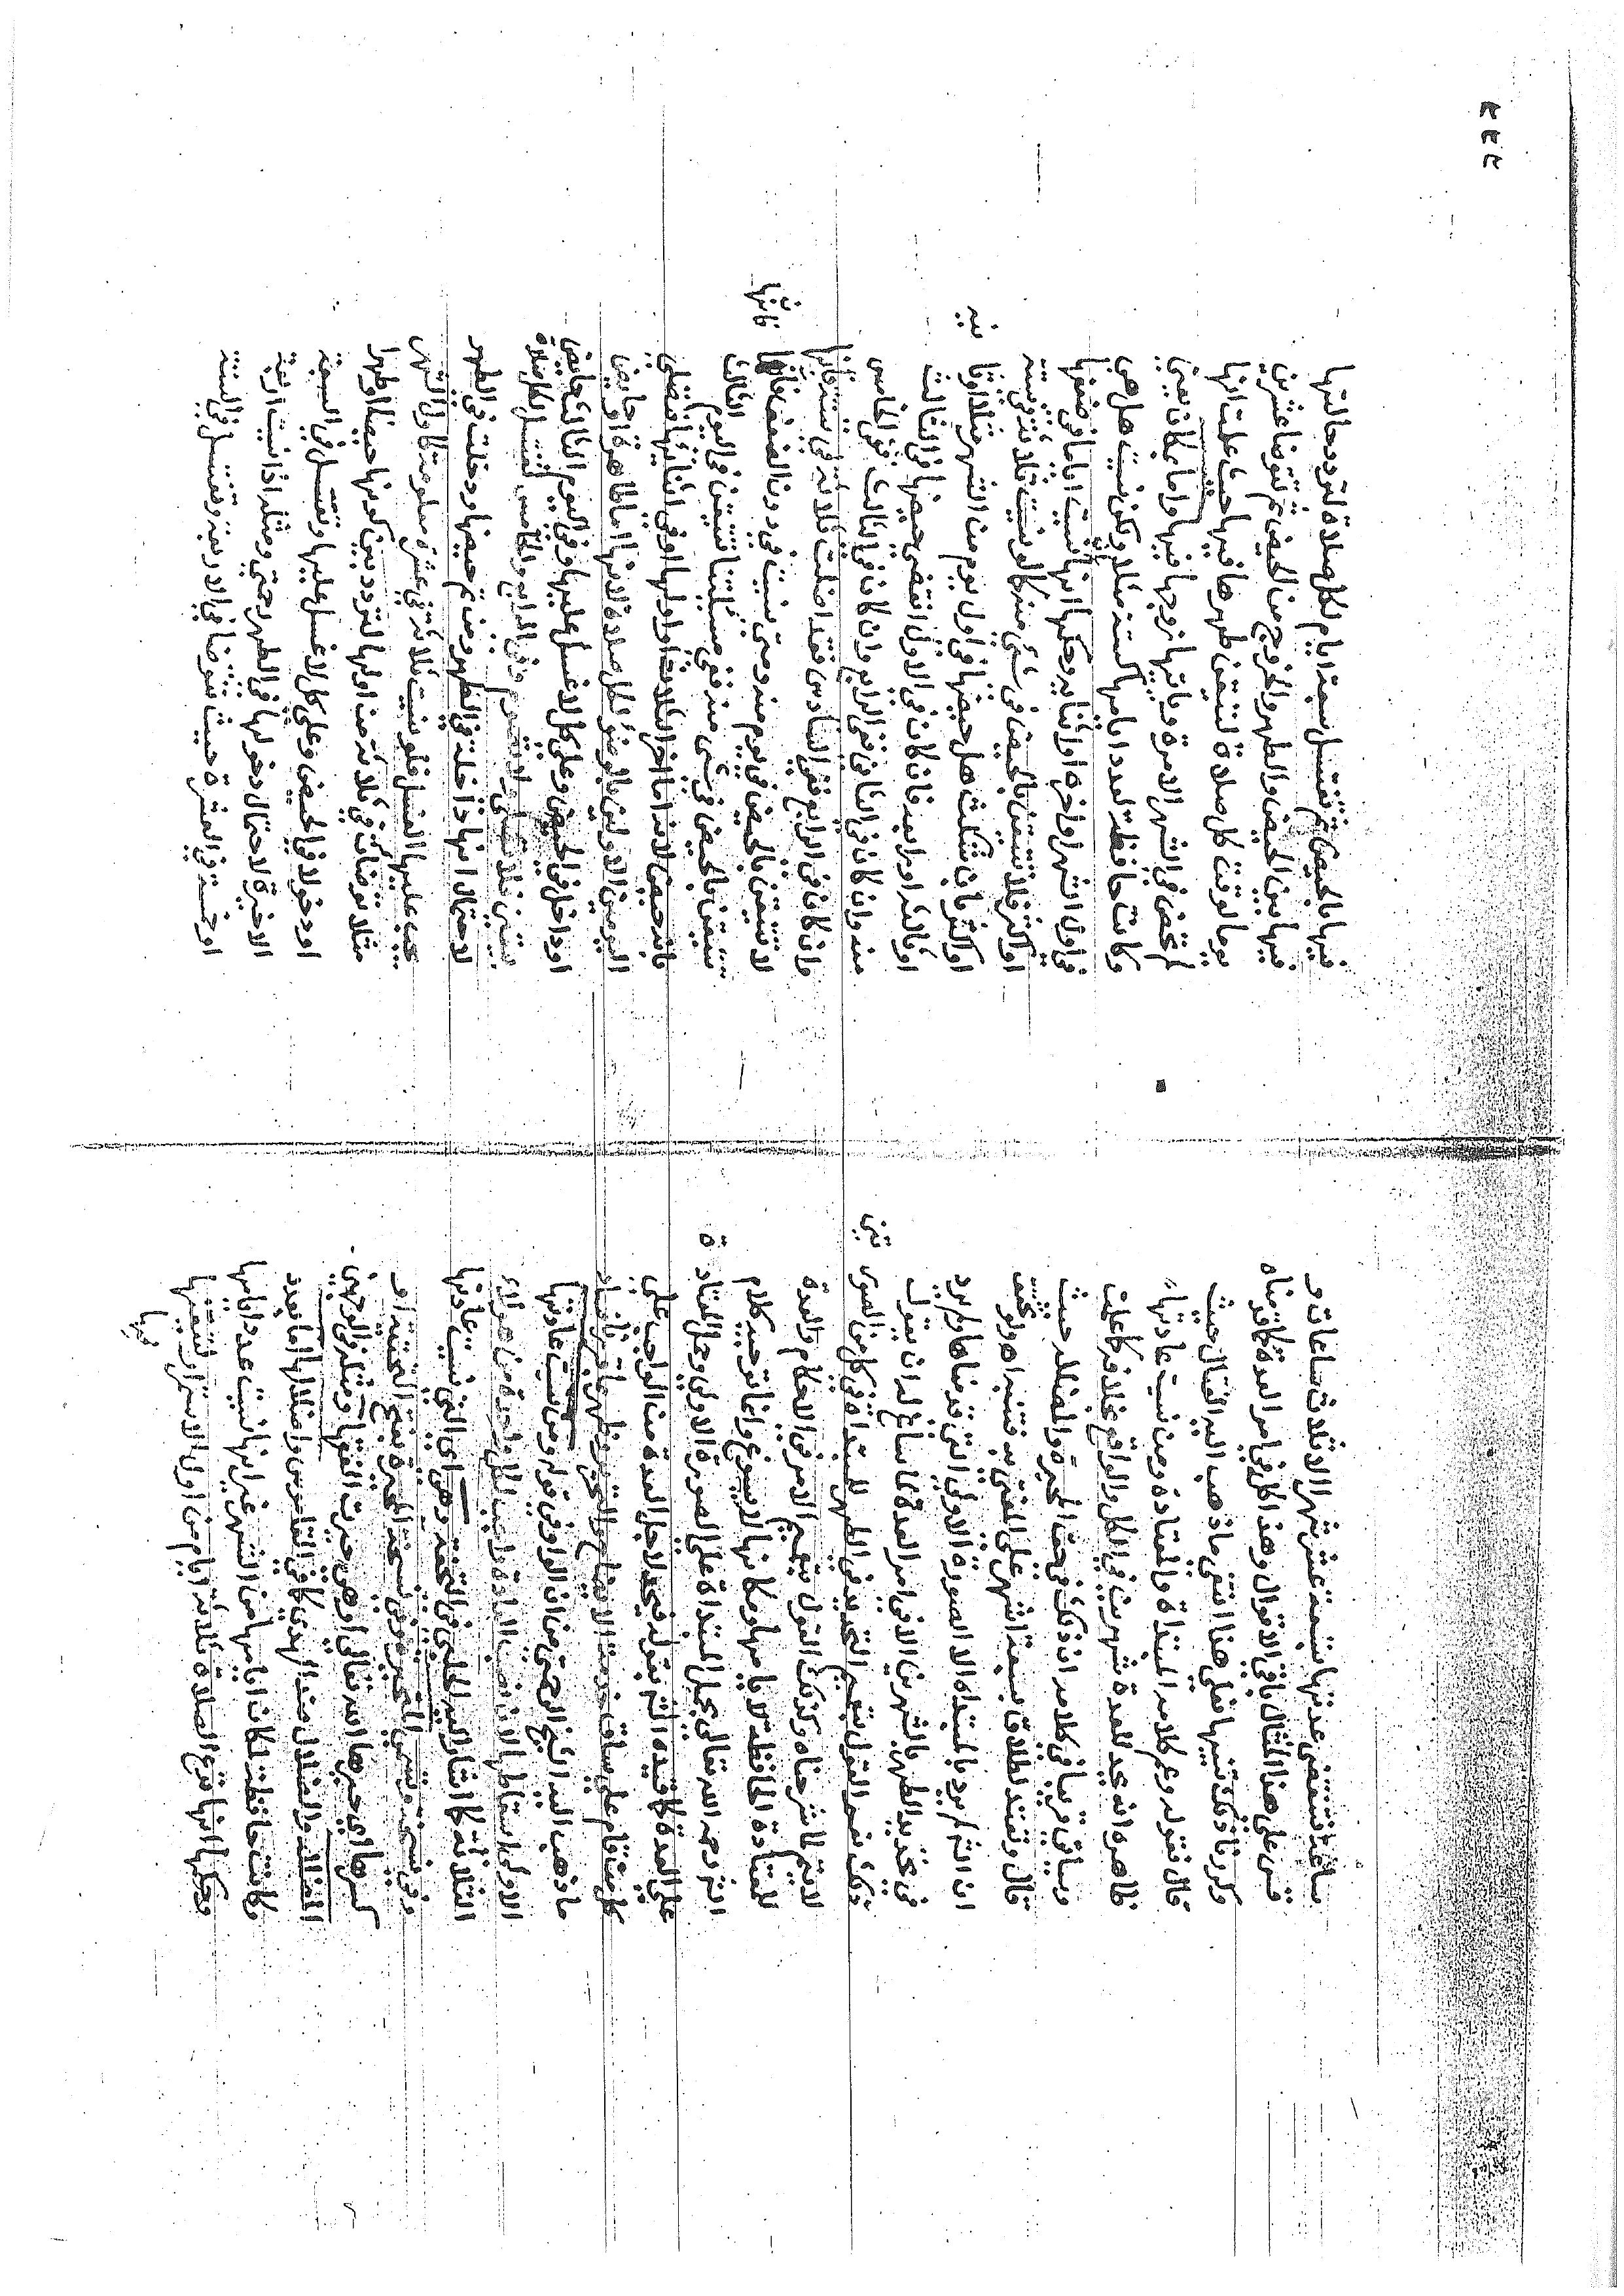 ساعة فتنقضي عدتها بسبعة عشر شهرا الا ثلاث ساعات و
قس على هذا المثال باقي الاقوال وهذا كله في امر العدة كما قدمناه
وكررنا ذلك تنبيها فعلى هذا انتفى ما ذهب اليه القتال حيث
قال بقوله وعم كلامه المبتداة والمعتادة ومن نسيت عادتها
ظاهره انه يحد للعدة شهرين في الكل والواقع بخلافه كما علمت
وسياتي قريبا في كلامه ان ذلك في حق المحيرة والمضللة حيث
قال وتعتد لطلاق بسبعة اشهر على المفتى به فتنبه اه ولو تنبه
ان الشر لم يرد بالمبتداة الا الصورة الاولى التي قدمناها ولم يرد
في تحديد الطهر بالشهرين الا في امر العدة لما ساغ له ان يقول
ذلك نعم القول بتعميم التحديد في الطهر للمبتداة في كل من الصوري
لا يتم لما شرحناه وكذلك القول بتعميم الامر في الاحكام والعدة
للمعتادة الحافظة لايامها ومكانها لا يسوغ وانما توجيه كلام
الشر رحمه الله تعالى بحمل المبتداة على الصورة الاولى وحمل المعتاد ة
على العدة كما قيده الشر بقوله فيحد لاجل العدة من الواجب على
كل مفت قام على ساق خدمة الافهام والتحرير وظهر ما قررناه فساد
ما ذهب اليه الشيخ الرحمتي من ان الواو في قوله ومن نسيت عادتها
الاولى اسقاطها لان نصب العادة واجب لكل واحدة من هؤلاء
الثلاثة كما اشار اليه الحلبي في التحفة وهي اي التي نسيت عادتها
وفي نسخ وتسمى المحيرة وفي نسخة المحيرة بفتح التحتية او
كسرها اي حيرها الله تعالى او هي حيرت الفقها ومثله في الوجهين
المضللة والضلال ضد الهدى كما في القاموس واضلالها اما بعدد
فكانت حافظة لمكان ايامها من الشهر غير انها نسيت عدد ايامها
وحكمها انها تدع الصلاة ثلاثة ايام من اول الاستمرار لتيقنها
فيها
فيها بالحيض ثم تغتسل سبعة ايام لكل صلاة لتردد حالتها
فيها بين الحيض والطهر والخروج من الحيض ثم تتوضا عشرين
يوما لوقت كل صلاة لتيقن طهرها فيها حيث علمت انها
لم تحض في الشهر الا مرة وياتيها زوجها فيها واما بمكان يعني
وكانت حافظة لعدد ايامها كستة مثلا ولكن نسيت هل هي
في اول الشهر او اخره او اثنايه وحكمها انها نسيت ايامها في ضعفها
او اكثر فلا تتيقن بالحيض في شيء منه كما لو نسيت ثلاثة في ستة
او اكثر بان شكت هل حيضها في اول يوم من الشهر مثلا او ثانيه
او ثالثه او رابعه فان كان في الاول انقضى حيضها في الثالث
منه وان كان في الثاني ففي الرابع وان كان في الثالث ففي الخامس
وان كان في الرابع ففي السادس فقد اضلت ثلاثة في ستة فانها
لا تتيقن بالحيض في يوم منه ومتى نسيت في دون الضعف فانها
تتيقن بالحيض في شيء منه ففي مسئلتنا تتيقن في اليوم الثالث
فانه حيض لانه اما اخر الثلاثة او اولها او في اثنائها فتصلي
اليومين الاولين بالوضو لكل صلاة لانها اما طاهرة او حايض
او داخل في الحيض وعلى كل لا غسل عليها وفي اليوم الثالث حائض
بيقين فلا تصلي ولا تصوم وفي الرابع والخامس تغتسل لكل صلاة
لاحتمال انها داخلة في الطهر فرغت من حيضها ودخلت في الطهر
يجب عليها الغسل فلو نسيت ثلاثة في عشرة معلومة كاول الشهر
مثلا توضات في ثلاثة من اولها لتردد بين كونها حيضا او طهرا
او دخولا في الحيض وعلى كل لا غسل عليها وتغتسل في السبعة
الاخيرة لاحتمال دخولها في الطهر رحمتي ومثله اذا نسيت اربعة
او خمسة في العشرة حيث تتوضا في الاربعة وتغتسل في الستة